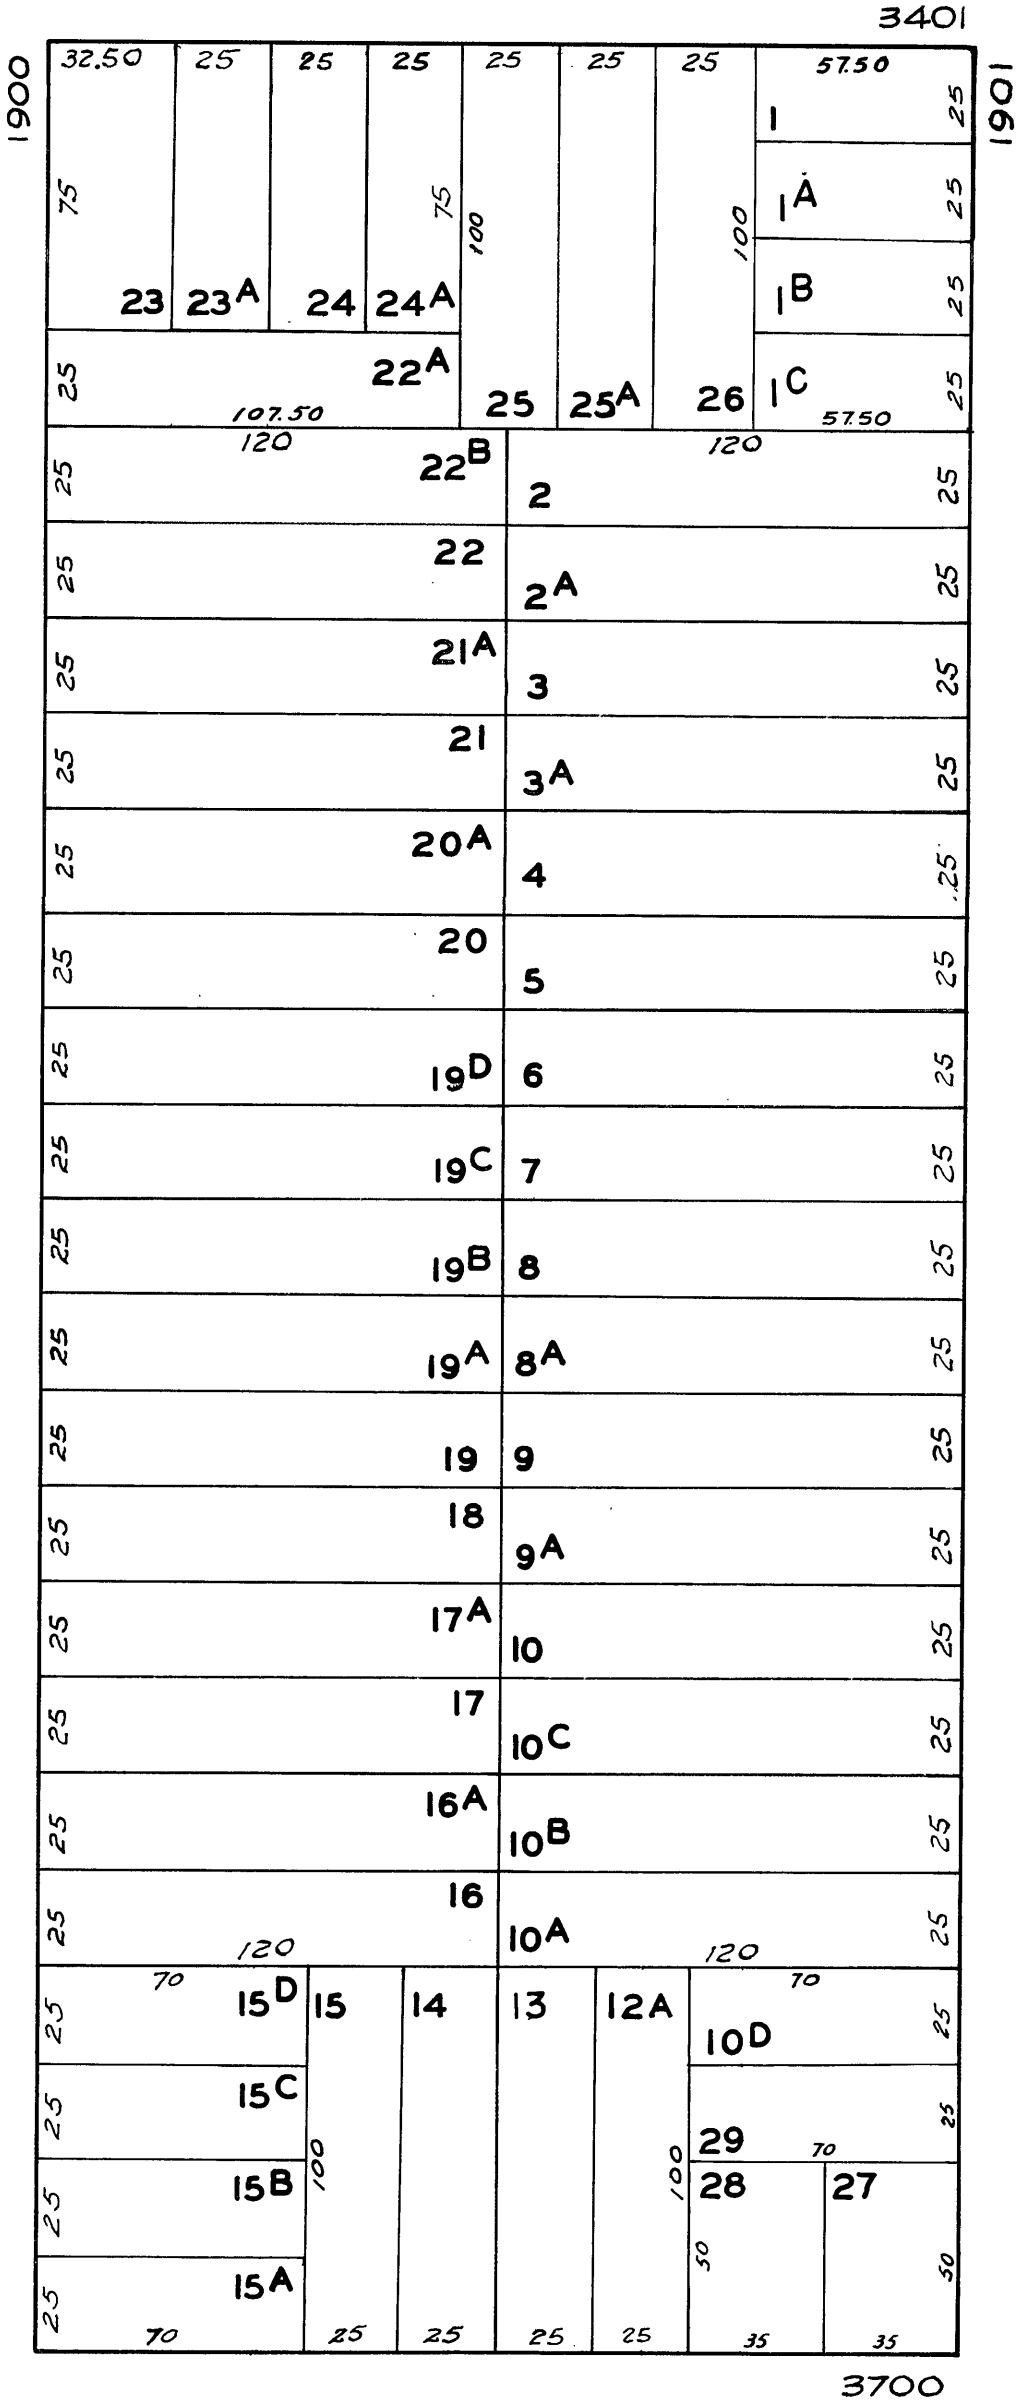 3401
1900
1901
32.50 25 25 25 25 25 25 57.50
1 25
75 75 100 100
1A 25
23 23A 24 24A
1B 25
25 22A
107.50
25 25A 26
1C 25
57.50
120 120
25 22B 2 25
25 22 2A 25
25 21A 3 25
25 21 3A 25
25 20A 4 25
25 20 5 25
25 19D 6 25
25 19C 7 25
25 19B 8 25
25 19A 8A 25
25 19 9 25
25 18 9A 25
25 17A 10 25
25 17 10C 25
25 16A 10B 25
25 16 10A 25
120 120
70 70
25 15D 15 14 13 12A 10D 25
25 15C 29 25
100 100 70
25 15B 28 27
50 50
25 15A
70 25 25 25 25 35 35
3700